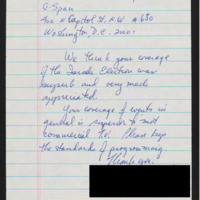 C-Span
400 N Capitol St. N.W. #650
Washington, D.C. 20001
We think your coverage
of the Election was
superb and very much
appreciated.
Your coverage of events in
general is superior to most
commercial T.V. Please keep
the standards of programming.
Thank you.